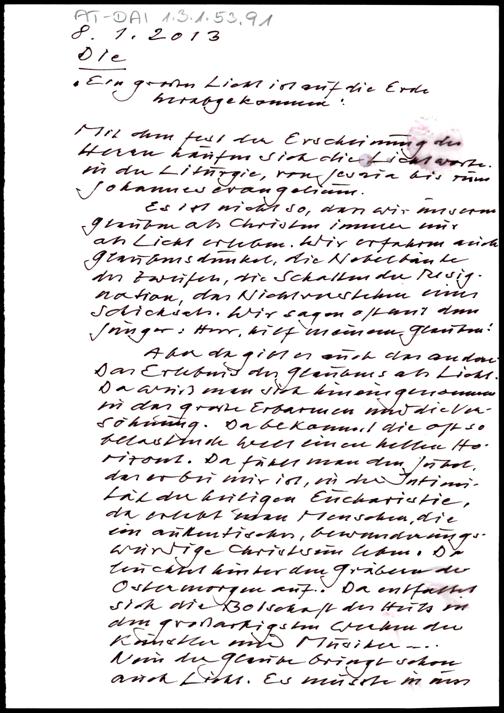 AT-DAI 1.3.1.53.91
8. 1. 2013
Die
"Ein großes Licht ist auf die Erde
herabgekommen".
Mit dem Fest der Erscheinung des
Herrn häufen sich die Lichtworte
in der Liturgie, von Jesaia bis zum
Johannesevangelium.
Es ist nicht so, dass wir unseren
Glauben als Christen immer nur
als Licht erleben. Wir erfahren auch
Glaubensdunkel, die Nebelbänke
des Zweifels, die Schatten der Resig-
nation, das Nichtverstehen eines
Schicksals. Wir sagen oft mit dem
Jünger: Herr, hilf meinem Glauben!
Aber da gibt es auch das andere:
Das Erlebnis des Glaubens als Licht.
Da weiß man sich hineingenommen
in das große Erbarmen und die Ver-
söhnung. Da bekommt die oft so
belastende Welt einen hellen Ho-
rizont. Da fühlt man den Jubel,
das er bei mir ist, in der Intimi-
tät der heiligen Eucharistie,
da erlebt man Menschen, die
ein authentisches, bewunderungs-
würdige Christsein leben. Da
leuchtet hinter den Gräbern der
Ostermorgen auf. Da entfaltet
sich die Botschaft des Heils in
den großartigsten Werken der
Künstler und Musiker ...
Nein der Glaube bringt schon
auch Licht. Es müsste in uns